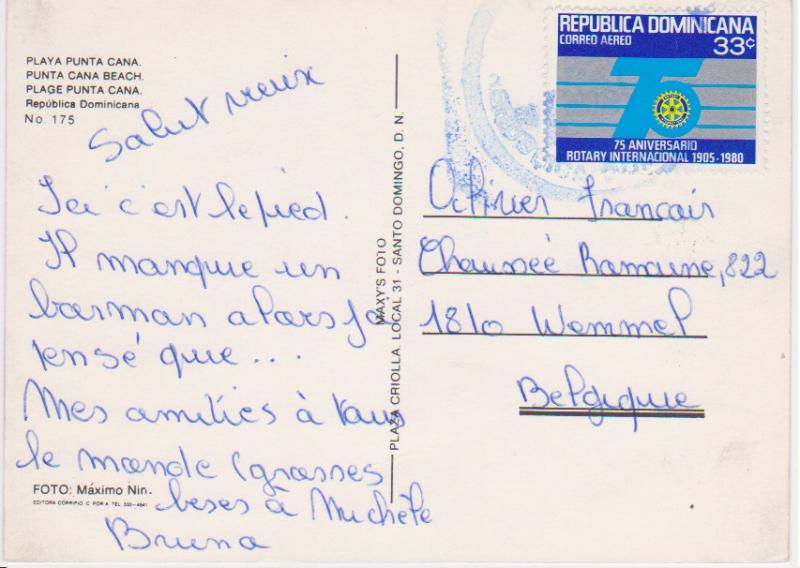 PLAYA PUNTA CANA.
PUNTA CANA BEACH.
PLAGE PUNTA CANA.
República Dominicana
No. 175
Salut vieux
Ici c'est le pied.
Il manque un
barman alors j'ai
pensé que...
Mes amitiés à tous
le monde (grasses
beses à Michèle
Bruno
FOTO: Máximo Nin.
EDITORA CORRIPIO C POR A TEL
MAXY'S FOTO
PLAZA CRIOLLA, LOCAL 31 - SANTO DOMINGO, D. N.
REPUBLICA DOMINICANA
CORREO AEREO
33¢
75
75 ANIVERSARIO
ROTARY INTERNACIONAL 1905-1980
Francais
Chaussée Romaine, 822
1810 Wemmel
Belgique